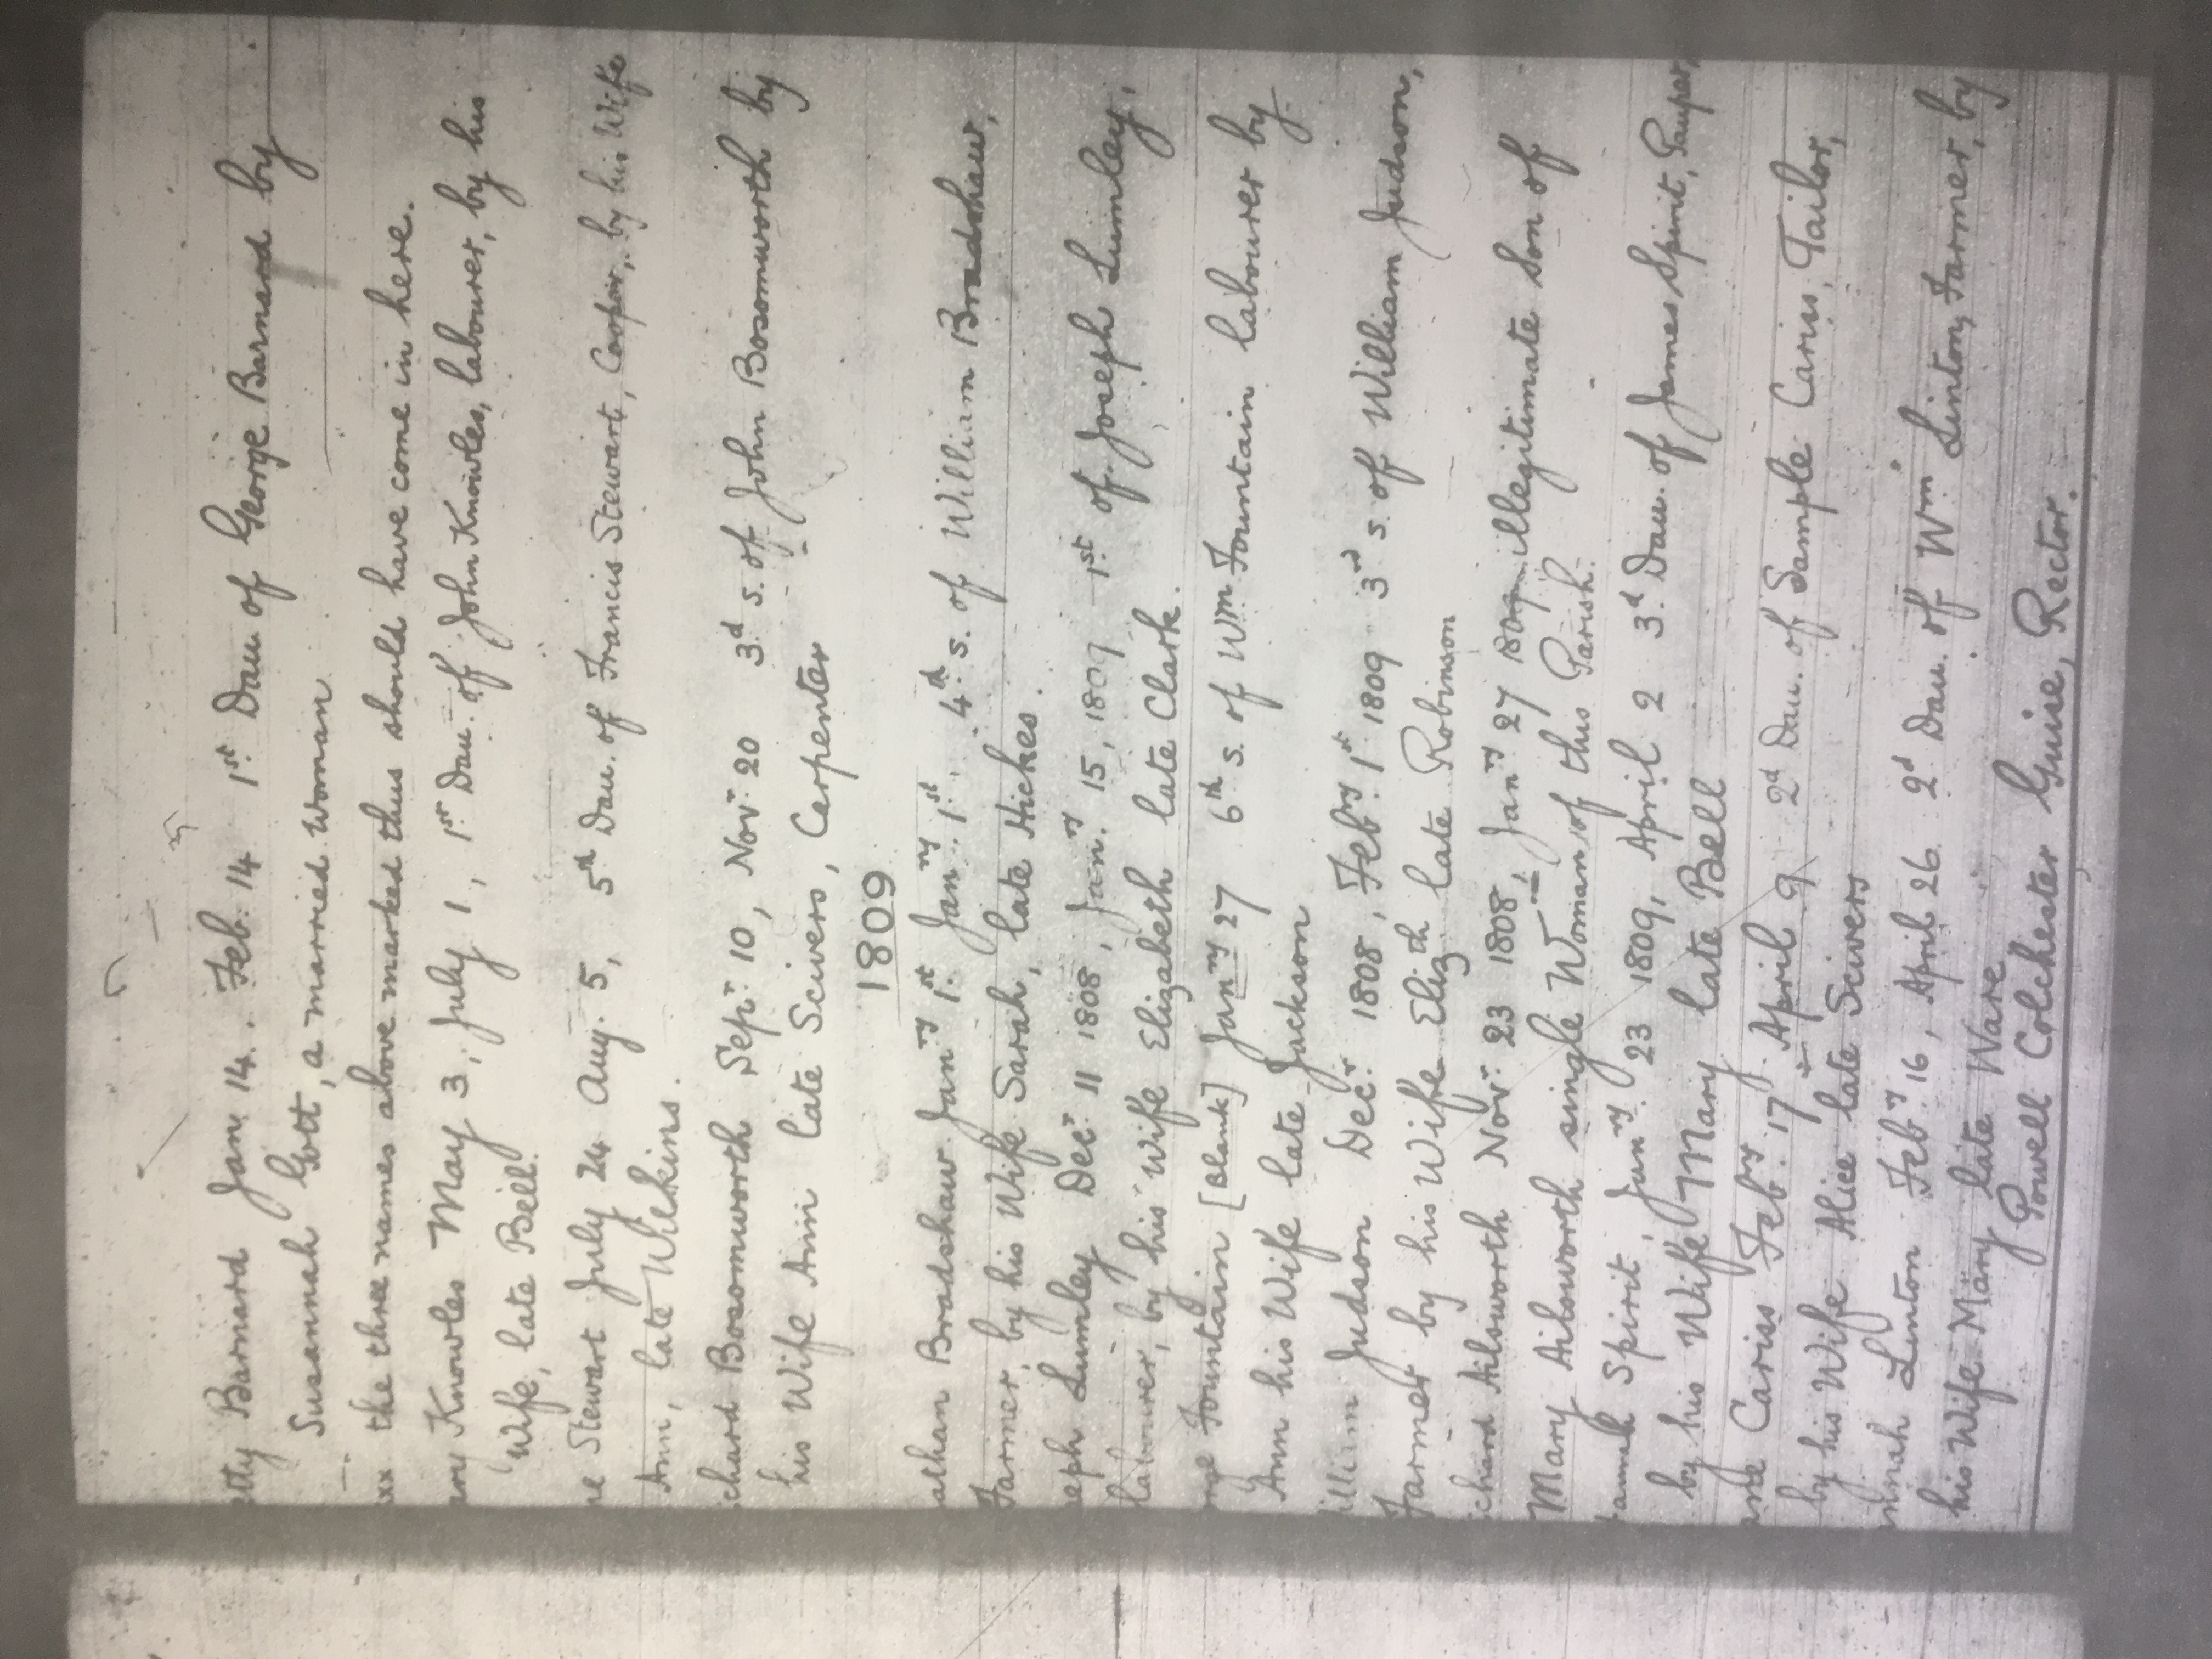 etty Barnard Jan. 14. Feb. 14 1st Dau of George Barnard by
Susannah Gott, a married Woman
xxx the three names above marked thus should have come in here.
ary Knowles May 3, July 1, 1st Dau. of John Knowles, labourer, by his
Wife, late Bell.
ne Stewart July 24 Aug. 5, 5th Dau. of Francis Stewart, Cooper, by his Wife
Ann, late Wilkins.
chard Bosomworth Sepr 10, Novr 20 3d s. of John Bosomworth by
his Wife Ann late Scivers, Carpenter
1809
athan Bradshaw Jany 1st Jany 1st, 4th s. of William Bradshaw,
Farmer, by his Wife Sarah, late Hickes.
seph Lumley Decr 11 1808, Jany 15, 1809 1st of Joseph Lumley,
labourer, by his Wife Elizabeth late Clark.
rge Fountain [Blank] Jany 27 6th s. of Wm Fountain labourer by
Ann his Wife late Jackson
illiam Judson Decr 1808, Feby 1st 1809 3rd s. of William Judson,
Farmer by his Wife Elizth late Robinson
chard Ailsworth Novr 23 1808, Jany 27 1809 illegitimate Son of
Mary Ailsworth single Woman of this Parish.
annah Spirit, Jany 23 1809, April 2 3d Dau. of James Spirit, Pauper,
by his Wife Mary late Bell
ane Cariss Feby 17 April 9 2d Dau. of Sample Cariss, Tailor,
by his Wife Alice late Scivers
nnah Linton Feby 16, April 26 2d Dau. of Wm Linton, Farmer, by
his Wife Mary late Ware
Powell Colchester Guise, Rector.